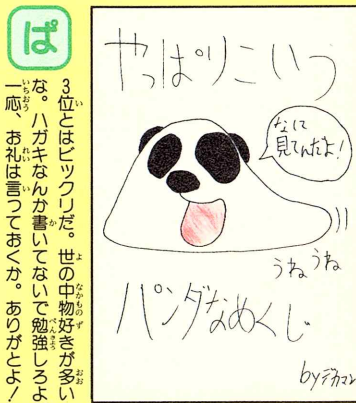 ぱ
3位とはビックリだ。世の中物好きが多い
な。ハガキなんか書いてないで勉強しろよ
一応、お礼は言っておくか。ありがとよ！
やっぱりこいつ
なに
見てんだよ！
うねうね
パンダなめくじ
byデカマン